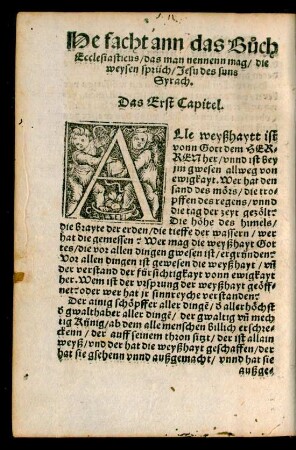 He facht ann das Bůch
Ecclesiasticus/das man nennenn mag/ die
weysen sprüch/Jesu des suns
Syrach.
Das Erst Capitel.
ALle weyßhaytt ist
vonn Gott dem HER-
REN her/vnnd ist bey
jm gwesen allweg von
ewigkayt. Wer hat den
sand des mörs/die tro-
pffen des regens/vnnd
die tag der zeyt gezölt:
Die höhe des himels/
die brayte der erden/die tieffe der wassern/wer
hat die gemessen? Wer mag die weyßhayt Got
tes/die vor allen dingen gwesen ist/ergründen?
Vor allen dingen ist gewesen die weyßhayt/vñ
der verstand der fürsichtigkayt vonn ewigkayt
her. Wem ist der vrsprung der weyßhayt geöff-
net: oder wer hat jr sinnreyche verstanden?
Der ainig schöpffer aller dingẽ/ð allerhöchst
ð gwalthaber aller dingẽ/ der gwaltig vñ mech
tig Künig/ab dem alle menschen billich erschre-
ckenn/der auff seinem thron sitzt/der ist allain
weyß/vnd der hat die weyßhayt geschaffen/der
hat sie gsehenn vnnd außgemacht/ vnnd hat sie
außge-